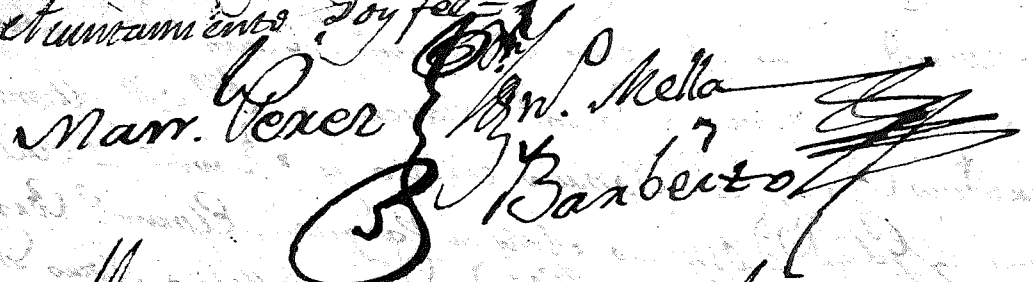 Ayuntamiento Doy fee =
Man. Perez
Mella
Barbeito